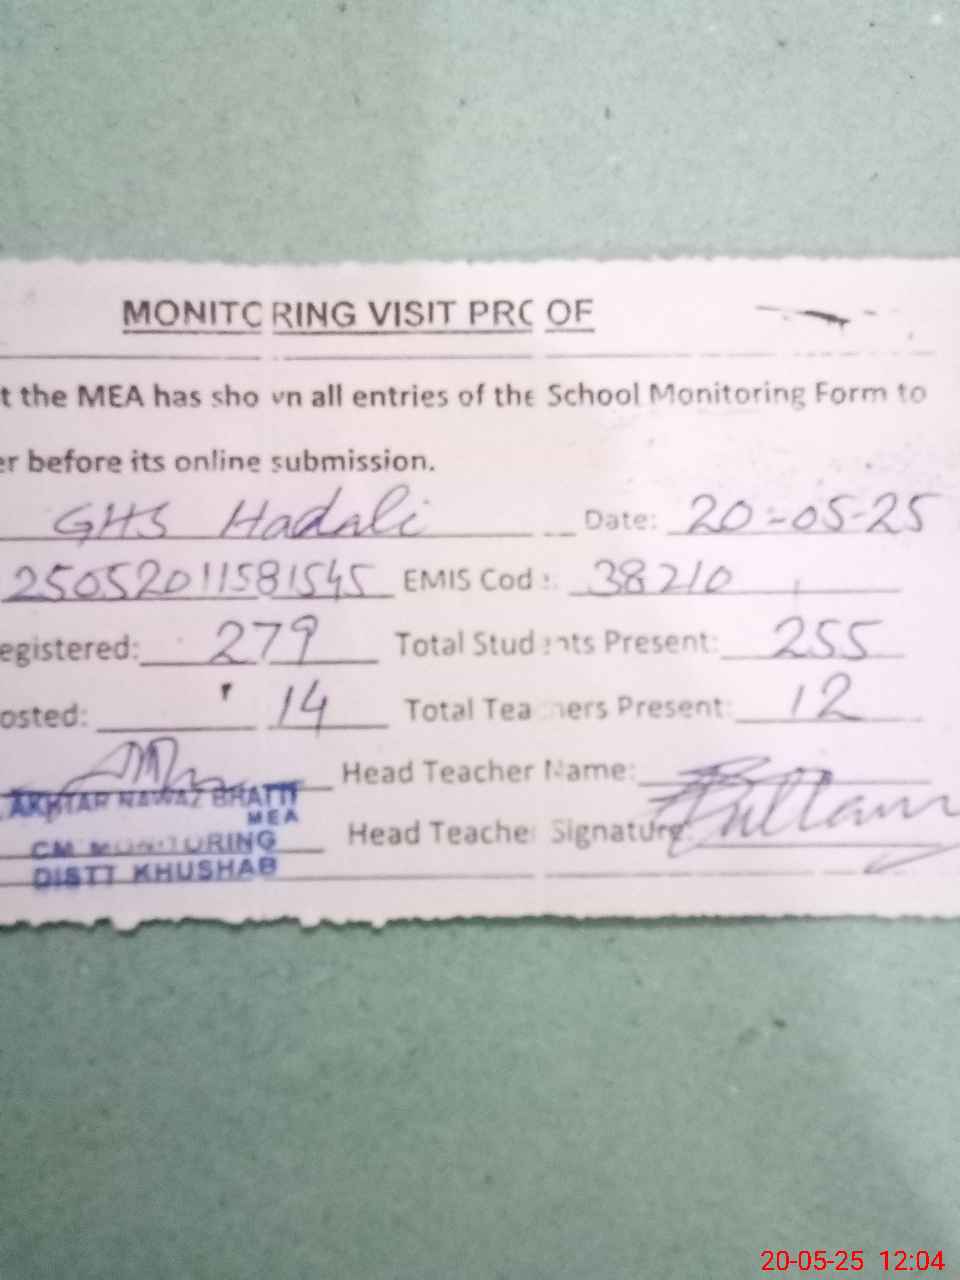 MONITORING VISIT PROOF
t the MEA has shown all entries of the School Monitoring Form to
er before its online submission.
GHS Hadali Date: 20-05-25
25052011581545 EMIS Cod : 38210
egistered: 279 Total Students Present: 255
osted: 14 Total Teachers Present: 12
Head Teacher Name:
AKHTAR NAWAZ BHATTI
MEA
Head Teacher Signature
CM MONITORING
DISTT KHUSHAB
20-05-25 12:04